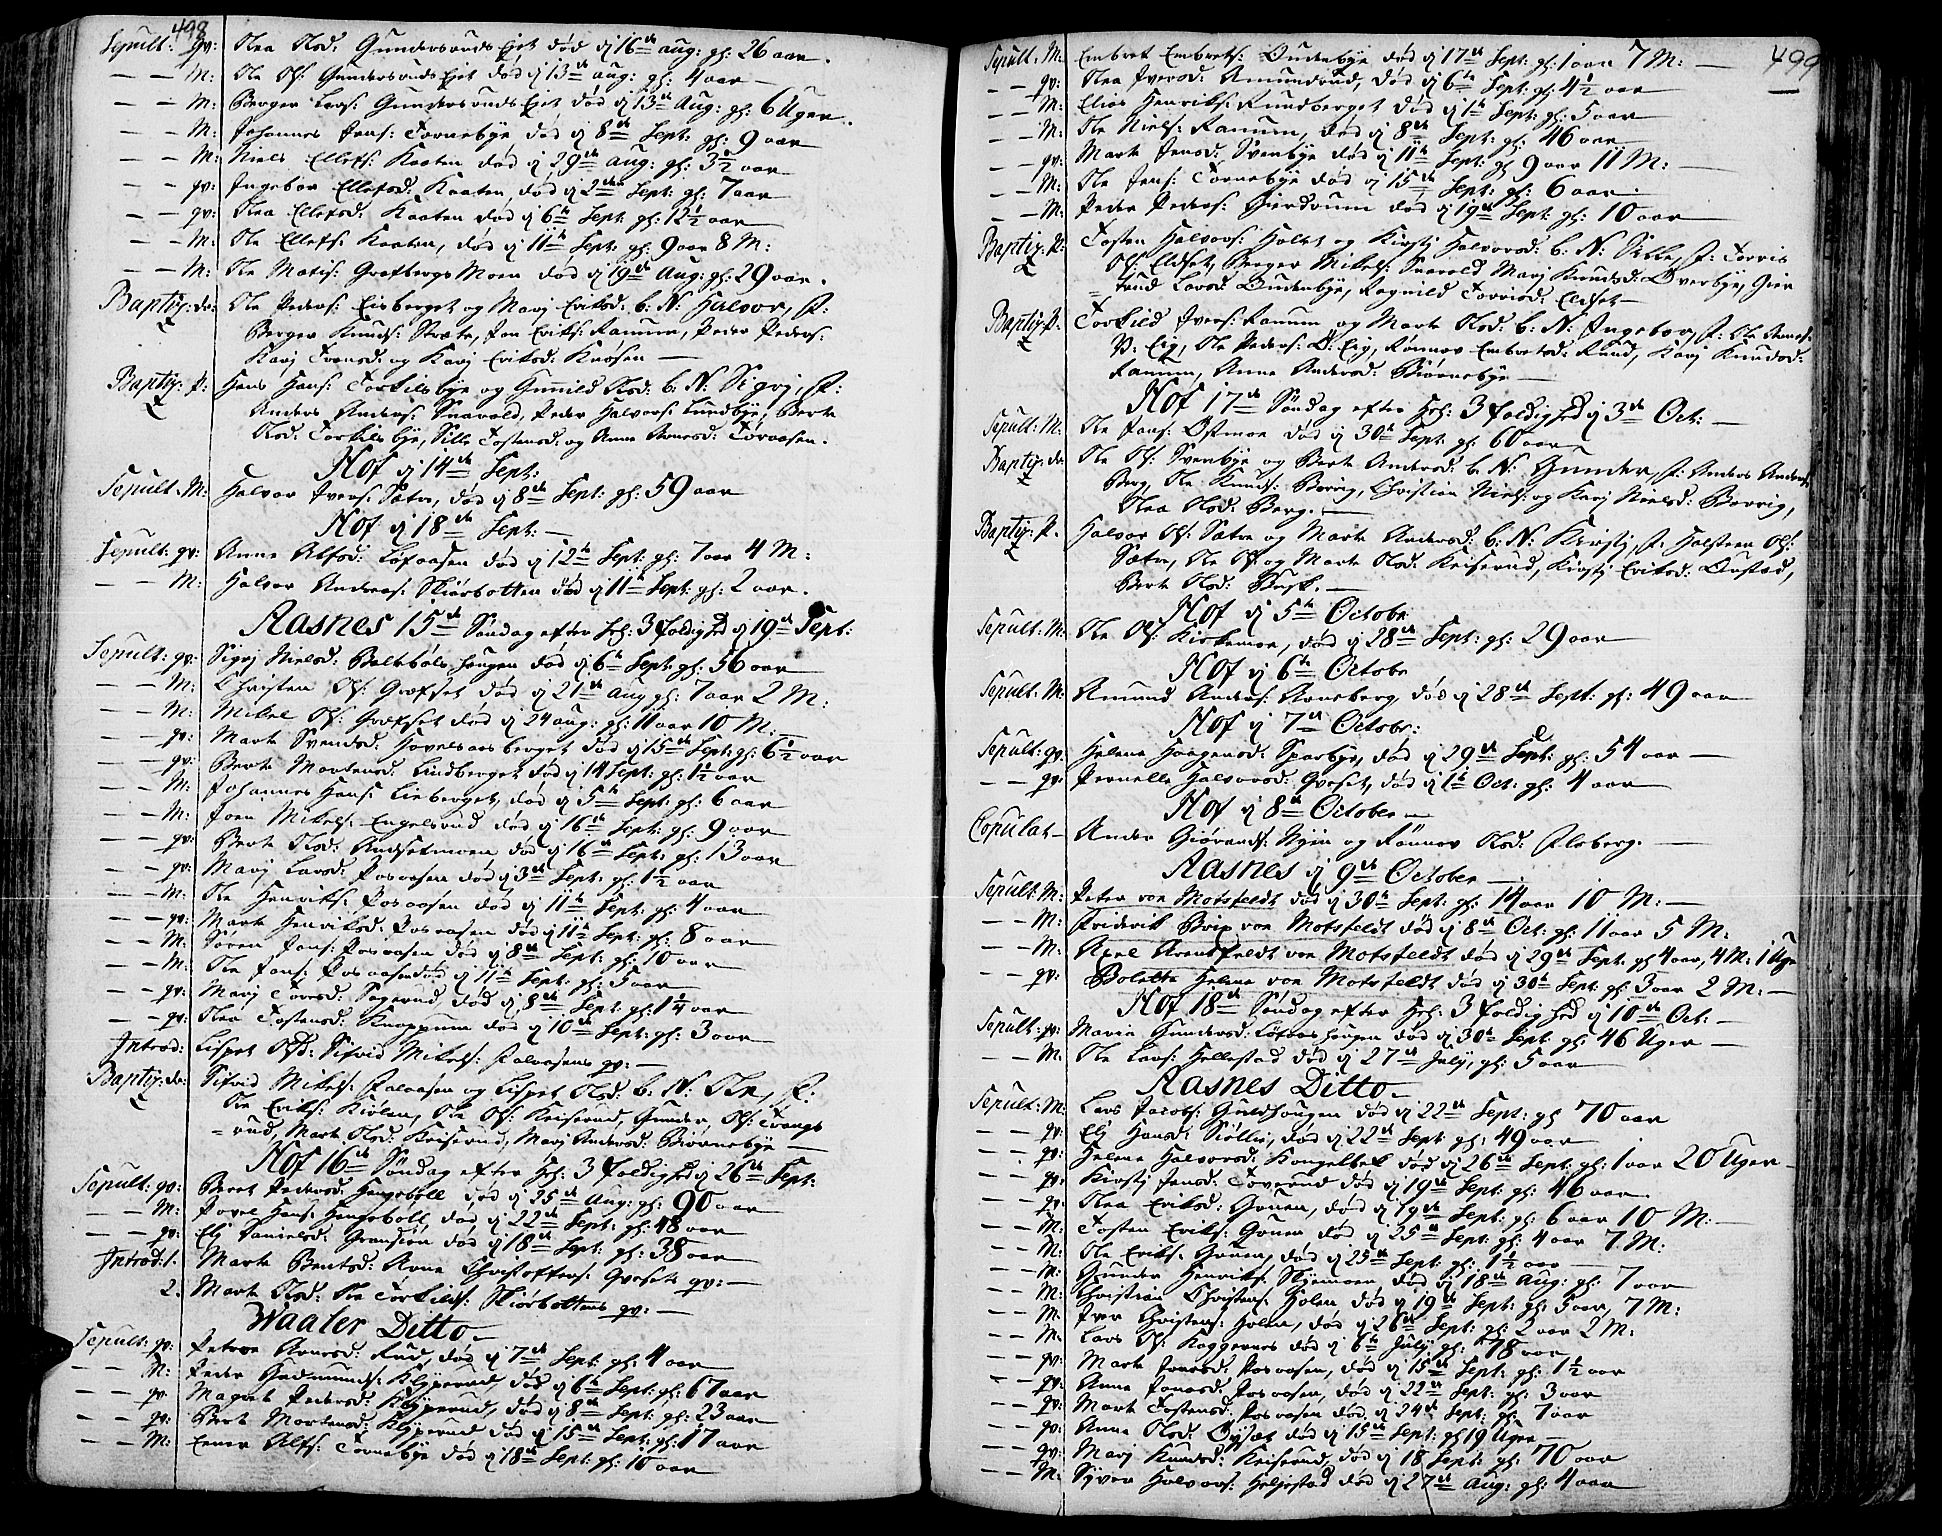 498
Sepult: qv: Olea Olsd: Gundersruds Eyet død dj 16de aug: gl: 26 aar.
— — M: Ole Ols: Gundersruds Eyet død dj 13de aug: gl: 4 aar —
— — M: Berger Lars: Gundersruds Eyet død dj 13de Aug: gl: 6 Uger.
— — M: Johannes Jens: Tornebye død dj 8de Sept: gl: 9 aar
— — M: Niels Ellefs: Kaaten død dj 29de aug: gl: 3½ aar
— — qv: Ingebor Ellefsd: Kaaten død dj 2den Sept: gl: 7 aar
— — qv: Olea Ellefsd: Kaaten død dj 6te Sept: gl: 12½ aar
— — M: Ole Ellefs: Kaaten, død dj 11te Sept: gl: 9 aar 8 M:
— — M: Ole Matis: Grafbergs Moen død dj 19de Aug: gl: 29 aar.
Baptiz: do: Ole Peders: Eisberget og Marj Eriksd: b: N: Halvor, F:
Berger Knuds: Stræte, Jon Eriks: Ranum, Peder Peders:
Karj Torsd: og Karj Eriksd: Knosen —
Baptiz: P: Hans Hans: Torkilsbye og Gunild Olsd: b: N: Sigrj, F:
Anders Anders: Snarold, Peder Halvors: Lundbye, Berte
Olsd: Torkilsbye, Sille Tostensd: og Anne Arnesd: Toraasen.
Hof dj 14de Sept:
Sepult: M: Halvor Ivers: Sætre, død dj 8de Sept: gl: 59 aar
Hof dj 18de Sept: —
Sepult: qv: Anne Alfsd: Lofaasen død dj 12te Sept: gl: 7 aar 4 M:
— — M: Halvor Andreas: Skiørbotten død dj 11te Sept: gl: 2 aar.
Aasnes 15de Søndag efter Hel: 3foldighed dj 19de Sept:
Sepult: qv: Sigrj Nielsd: Baltebøls haugen død dj 6te Sept: gl: 56 aar
— — M: Christen Ols: Græsset død dj 21de aug gl: 7 aar 2 M:
— — M: Mikel Ols: Græsset død dj 24 aug: gl: 11 aar 10 M:
— — qv: Marte Svendsd: Hovelsaasberget død dj 15de Sept: gl: 6½ aar
— — qv: Berte Mortensd: Lindberget død dj 14 Sept: gl: 1½ aar
— — M: Johannes Hans: Linberget, død dj 5te Sept: gl: 6 aar
— — M: Joen Mikels: Engelsrud død dj 16de Sept: gl: 9 aar
— — qv: Berte Olsd: Audsetmoen død dj 16de Sept: gl: 13 aar
— — qv: Marj Larsd: Posaasen død dj 3de Sept: gl: 1½ aar
— — M: Ole Henriks: Posaasen død dj 11te Sept: gl: 4 aar
— — qv: Marte Henriksd: Posaasen død dj 11te Sept: gl: 8 aar
— — M: Søren Jons: Posaasen død dj 8de Sept: gl: 10 aar
— — M: Ole Jens: Posaasen død dj 11te Sept: gl: 5 aar
— — qv: Marj Torsd: Sagerud død dj 8de Sept: gl: 1¼ aar
— — qv: Olea Tostensd: Knappum død dj 10de Sept: gl: 3 aar
Introd: Lispet Olsd: Sifvid Mikels: Palaasens qv: —
Baptiz: do: Sifvid Mikels: Palaasen og Lispet Olsd: b: N: Ole, F:
Ole Eriks: Kiølen, Ole Ols: Keiserud, Gunder Ols: Trangs
rud, Marte Olsd: Keiserud, Marj Andersd: Biørnebye —
Hof 16de Søndag efter Hel: 3foldighed dj 26de Sept:
Sepult: qv: Beret Pedersd: Haugsboll død dj 25de Aug: gl: 90 aar
— — M: Povel Hans: Haugsboll, død dj 22de Sept: gl: 48 aar
— — qv: Elj Danielsd: Gransiøn død dj 18de Sept: gl: 38 aar
Introd: 1. Marte Bentsd: Arne Christoffers: Qvesets qv: —
2. Marte Olsd: Ole Torkilds: Skiørbottens qv: —
Waaler Ditto —
Sepult: qv: Petrea Arnesd: Rud, død dj 7de Sept: gl: 4 aar
— — M: Peder Gudmunds: Klyperud, død dj 6te Sept: gl: 67 aar
— — qv: Magret Pedersd: Klyperud, død dj 8de Sept: gl: 23 aar
— — qv: Berte Mortensd: Klyperud død dj 15de Sept: gl: 17 aar
— — M: Enner Alfs: Tornebye død dj 18de Sept: gl: 10 aar
499
Sepult: M: Embret Embrets: Oudenbye død dj 17de Sept: gl: 1 aar 7 M: —
— — qv: Olea Iversd: Amundrud, død dj 6te Sept: gl: 4½ aar
— — M: Elias Henriks: Rundberget død dj 1te Sept: gl: 5 aar
— — M: Ole Niels: Ranum, død dj 8de Sept: gl: 46 aar
— — qv: Marte Jensd: Svenbye død dj 11te Sept: gl: 9 aar 11 M: —
— — M: Ole Jens: Tornebye død dj 15de Sept: gl: 6 aar
— — M: Peder Peders: Gierdrum død dj 19de Sept: gl: 10 aar
Baptiz: P: Tosten Halvors: Holtet og Kirstj Halvorsd: b: N: Sille, F: Torris
Ols: Eldset, Berger Mikels: Snarold Marj Knudsd: Overbye, Gier
trud Larsd: Oudenbye, Ragnild Torrisd: Eldset —
Baptiz: P: Torkild Ivers: Ranum og Marte Olsd: b: N: Ingebor, F: Ole
V: Eig, Ole Peders: Ø: Eig, Rønnov Embretsd: Rund, Karj Knudsd:
Ranum, Anne Andersd: Biørnebye —
Hof 17de Søndag efter Hel: 3foldighed dj 3de Oct: —
Sepult: M: Ole Jens: Østmoe død dj 30te Sept: gl: 60 aar
Baptiz: do: Ole Ols: Svenbye og Berte Andersd: b: N: Gunder, F: Anders Anders:
Berg, Ole Knuds: Borrig, Christian Niels: og Karj Nielsd: Borrig,
Olea Olsd: Berg. —
Baptiz: P. Halvor Ols: Sætre og Marte Andersd: b: N: Kirstj, F: Halsten Ols:
Sætre, Ole Ols: og Marte Olsd: Keiserud, Kirstj Eriksd: Opstad,
Berte Olsd: Bask. —
Hof dj 5te October
Sepult: M: Ole Ols: Kirkemoe, død dj 28de Sept: gl: 29 aar
Hof dj 6te Octobr
Sepult: M: Amund Anders: Arneberg, død dj 28de Sept: gl: 49 aar
Hof dj 7de Octobr:
Sepult: qv: Helene Haagensd: Sparbye, død dj 29de Sept: gl: 54 aar —
— — qv: Pernelle Halvorsd: Qveset, død dj 1te Oct: gl: 4 aar
Hof dj 8de October —
Copulat — Ander Giørands: Nyen og Rønnov Olsd: Flisberg. —
Aasnes dj 9de October —
Sepult: M: Peter von Motsfeldt død dj 30te Sept: gl: 14 aar 10 M: —
— — M: Friderik Brix von Motsfeldt død dj 8de Oct: gl: 11 aar 5 M:
— — M: Axel Arentfeldt von Motsfeldt død dj 29de Sept: gl 4 aar, 4 M: 1 Uge
— — qv: Bolette Helene von Motsfeldt død dj 30te Sept: gl: 3 aar 2 M: —
Hof 18de Søndag efter Hel: 3foldighed dj 10de Oct: —
Sepult: qv: Maria Gundersd: Lofaashaugen død dj 30te Sept: gl: 46 Uger —
— — M: Ole Lars: Hellestad død dj 27de July, gl: 5 aar
Aasnes Ditto —
Sepult: M: Lars Jacobs: Guldhaugen død dj 22de Sept: gl 70 aar
— — qv: Elj Hansd: Siøllie, død dj 22de Sept: gl: 49 aar
— — qv: Helene Halvorsd: Kongelbek død dj 26de Sept: gl: 1 aar 20 Uger —
— — qv: Kirstj Jensd: Toverud død dj 19de Sept: gl: 46 aar
— — qv: Olea Eriksd: Gruen, død dj 19de Sept: gl: 6 aar 10 M: —
— — M: Tosten Eriks: Gruen død dj 25de Sept: gl: 4 aar 7 M:
— — M: Ole Eriks: Gruen, død dj 25de Sept: gl: 1½ aar
— — M: Gunder Henriks: Skjemoen død dj 18de Aug: gl: 7 aar
— — M: Christian Christens: Holen, død dj 19de Sept: gl: 5 aar, 7 M:
— — M: Iver Christens: Holen, død dj 26de Sept: gl: 2 aar 2 M:
— — M: Lars Ols: Kaggernes død dj 6te July gl: 78 aar
— — qv: Marte Jensd: Posaasen, død dj 15de Sept: gl: 1½ aar
— — qv: Anne Jonasd: Posaasen, død dj 22de Sept: gl: 3 aar
— — qv: Marte Tostensd: Posaasen død dj 24de Sept: gl: 7 aar
— — qv: Anne Olsd: Øysæt død dj 15de Sept: gl 19 Uger —
— — qv: Marj Knudsd: Keiserud, død dj 18 Sept: gl: 70 aar
— — M: Syver Halvors: Heljestad død dj 27de Aug: gl: 4 aar